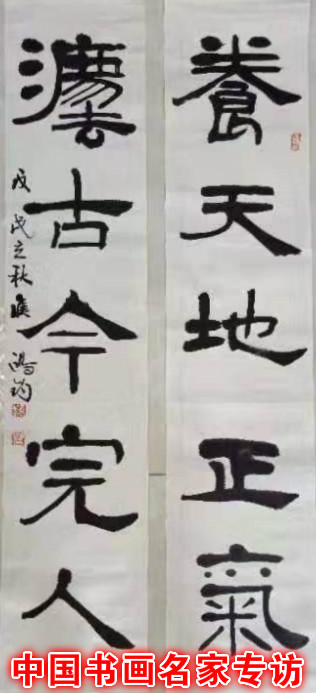 養天地正氣
灋古今完人
戊戌立秋
中国书画名家专访